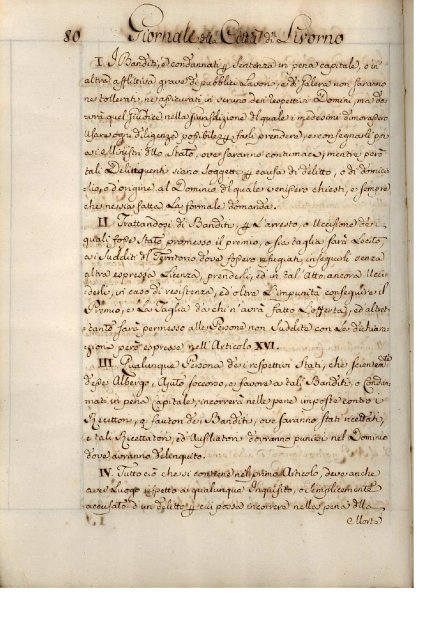 80 Giornale della Città di Livorno
I. I Banditi, e condannati per Sentenza in pena capitale, o in
altra afflittiva grave de pubblici Lavori, e di Galera non saranno
ne tollerati, ne assicurati in veruno dei respettivi Domini, ma do
vrà quel Giudice nella giurisdizione del quale i medesimi dimorassero
usare ogni diligenza possibile per farli prendere, e consegnarli pres
so i Ministri dello Stato, ove saranno contumaci, mentre però
tali Delinquenti siano soggetti per causa di delitto, o di domici
lio, o d'origine al Dominio del quale venissero chiesti, e sempre
che ne sia fatta la formale domanda.
II. Trattandosi di Banditi, per l'arresto, o Uccisione dei
quali fosse stato promesso il premio, o sia taglia sarà Lecito
ai Sudditi del Territorio dove fossero refugiati, inseguirli senza
altra espressa Licenza, prenderli, ed in tal'atto ancora Ucci
derli, in caso di resistenza, ed oltre L'impunità conseguire il
Premio, e La Taglia da chi n'avrà fatto L'offerta, ed altret
tanto sarà permesso alle Persone non Suddite con La dichiara
zione però espressa nell'Articolo XVI.
III. Qualunque Persona dei respettivi Stati, che scientemente
desse Albergo, Ajuto soccorso, o favore a tali Banditi, o Condan
nati in pena Capitale, incorrerà nelle pene imposte contro i
Ricettatori, o fautori dei Banditi, ove saranno stati ricettati,
e tali Ricettatori, ed Ausiliatori dovranno punirsi nel Dominio
dove avranno delinquito.
IV. Tutto ciò che si contiene nel primo Articolo, deve anche
aver Luogo rispetto a qualunque Inquisito, o semplicemente
accusato d'un delitto per cui possa incorrere nella pena della
Morte